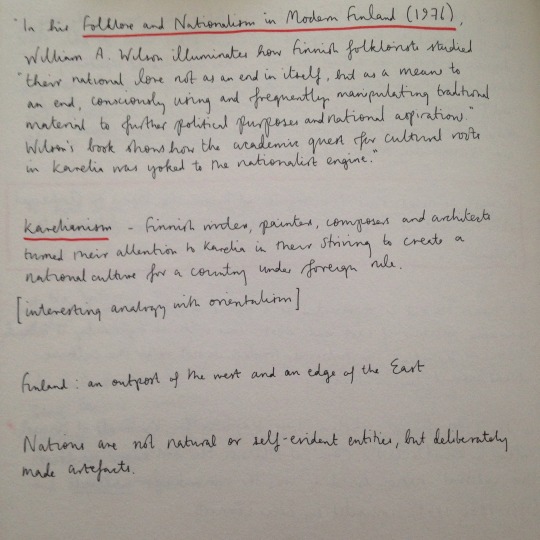 "In his Folklore and Nationalism in Modern Finland (1976),
William A. Wilson illuminates how Finnish folklorists studied
"their national lore not as an end in itself, but as a means to
an end, consciously using and frequently manipulating traditional
material to further political purposes and national aspirations."
Wilson's book shows how the academic quest for cultural roots
in Karelia was yoked to the nationalist engine."
Karelianism - Finnish writers, painters, composers and architects
turned their attention to Karelia in their striving to create a
national culture for a country under foreign rule.
[interesting analogy with orientalism]
Finland: an outpost of the west and an edge of the East
Nations are not natural or self-evident entities, but deliberately
made artefacts.